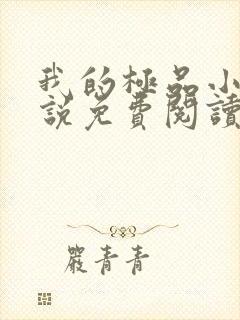 我的極品小
說免費閱讀
嚴青青